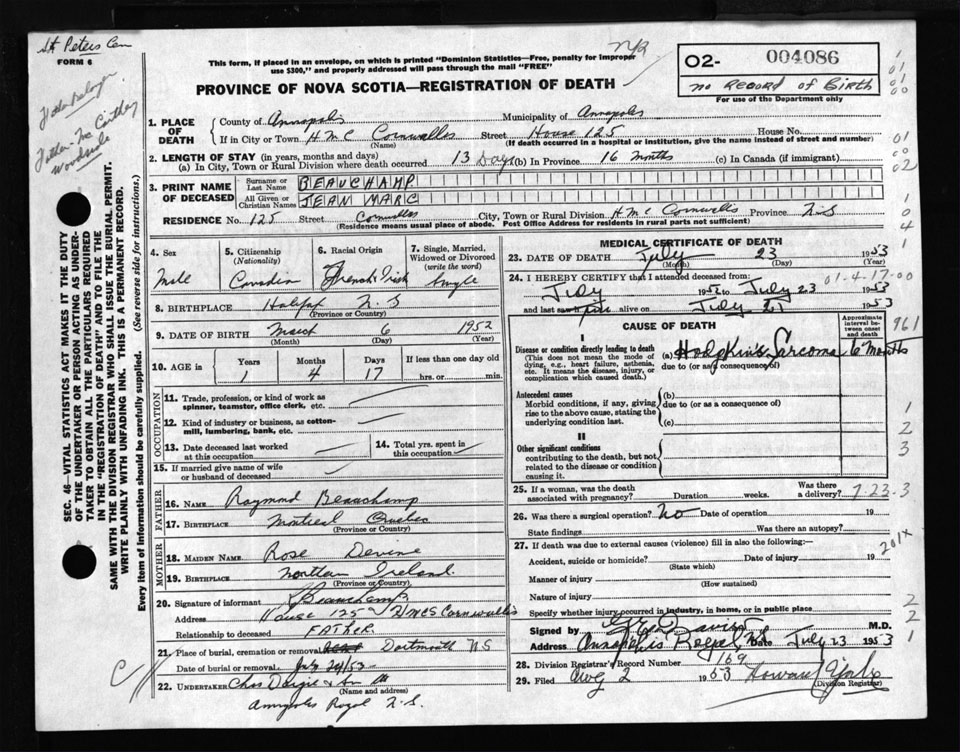 St Peters Cem
FORM 6
This form, if placed in an envelope, on which is printed "Dominion Statistics—Free, penalty for improper
use $300," and properly addressed will pass through the mail "FREE"
PROVINCE OF NOVA SCOTIA—REGISTRATION OF DEATH
O2- 004086
no Record of Birth
For use of the Department only
Father - Mc Carthy
Woodside
SEC. 46—VITAL STATISTICS ACT MAKES IT THE DUTY
OF THE UNDERTAKER OR PERSON ACTING AS UNDER-
TAKER TO OBTAIN ALL THE PARTICULARS REQUIRED
IN THE "REGISTRATION OF DEATH" AND TO FILE THE
SAME WITH THE DIVISION REGISTRAR WHO SHALL ISSUE THE BURIAL PERMIT.
WRITE PLAINLY WITH UNFADING INK. THIS IS A PERMANENT RECORD.
Every item of information should be carefully supplied. (See reverse side for instructions.)
1. PLACE OF DEATH
County of Annapolis Municipality of Annapolis
If in City or Town HMC Cornwallis Street House 125 House No.
(Name) (If death occurred in a hospital or institution, give the name instead of street and number)
2. LENGTH OF STAY (in years, months and days)
(a) In City, Town or Rural Division where death occurred 13 Days (b) In Province 16 months (c) In Canada (if immigrant)
3. PRINT NAME OF DECEASED
Surname or Last Name BEAUCHAMP
All Given or Christian Names JEAN MARC
RESIDENCE No. 125 Street Cornwallis City, Town or Rural Division HMC Cornwallis Province N.S
(Residence means usual place of abode. Post Office Address for residents in rural parts not sufficient)
4. Sex Male
5. Citizenship (Nationality) Canadian
6. Racial Origin French Irish
7. Single, Married, Widowed or Divorced (write the word) Single
8. BIRTHPLACE Halifax N.S
(Province or Country)
9. DATE OF BIRTH March 6 1952
(Month) (Day) (Year)
10. AGE in Years 1 Months 4 Days 17 If less than one day old
hrs. or min.
OCCUPATION
11. Trade, profession, or kind of work as
spinner, teamster, office clerk, etc.
12. Kind of industry or business, as cotton-
mill, lumbering, bank, etc.
13. Date deceased last worked
at this occupation
14. Total yrs. spent in
this occupation
15. If married give name of wife
or husband of deceased
FATHER
16. NAME Raymond Beauchamp
17. BIRTHPLACE Montreal Quebec
(Province or Country)
MOTHER
18. MAIDEN NAME Rose Devine
19. BIRTHPLACE Northern Ireland.
(Province or Country)
20. Signature of informant R Beauchamp
Address House 125 HMCS Cornwallis
Relationship to deceased FATHER
21. Place of burial, cremation or removal Dartmouth NS
Date of burial or removal July 24/53
22. UNDERTAKER Chas Dargie & Son
(Name and address)
Annapolis Royal N.S.
MEDICAL CERTIFICATE OF DEATH
23. DATE OF DEATH July 23 1953
(Month) (Day) (Year)
24. I HEREBY CERTIFY that I attended deceased from:
01-4-17-00
July 1952 to July 23 1953
and last saw him alive on July 21 1953
CAUSE OF DEATH
Approximate interval between onset and death
961
I
Disease or condition directly leading to death
(This does not mean the mode of
dying, e.g., heart failure, asthenia,
etc. It means the disease, injury, or
complication which caused death.)
(a) Hodgkin's Sarcoma 6 Months
due to (or as a consequence of)
Antecedent causes
Morbid conditions, if any, giving
rise to the above cause, stating the
underlying condition last.
(b)
due to (or as a consequence of)
(c)
II
Other significant conditions
contributing to the death, but not
related to the disease or condition
causing it.
25. If a woman, was the death
associated with pregnancy? Duration weeks. Was there
a delivery? 7-23-3
26. Was there a surgical operation? no Date of operation 19
State findings Was there an autopsy?
27. If death was due to external causes (violence) fill in also the following:— 201X
Accident, suicide or homicide? Date of injury 19
(State which)
Manner of injury
(How sustained)
Nature of injury
Specify whether injury occurred in industry, in home, or in public place
Signed by M.D.
Address Annapolis Royal, N.S. Date July 23 1953
28. Division Registrar's Record Number 169
29. Filed Aug 2 1953 Howard
(Division Registrar)